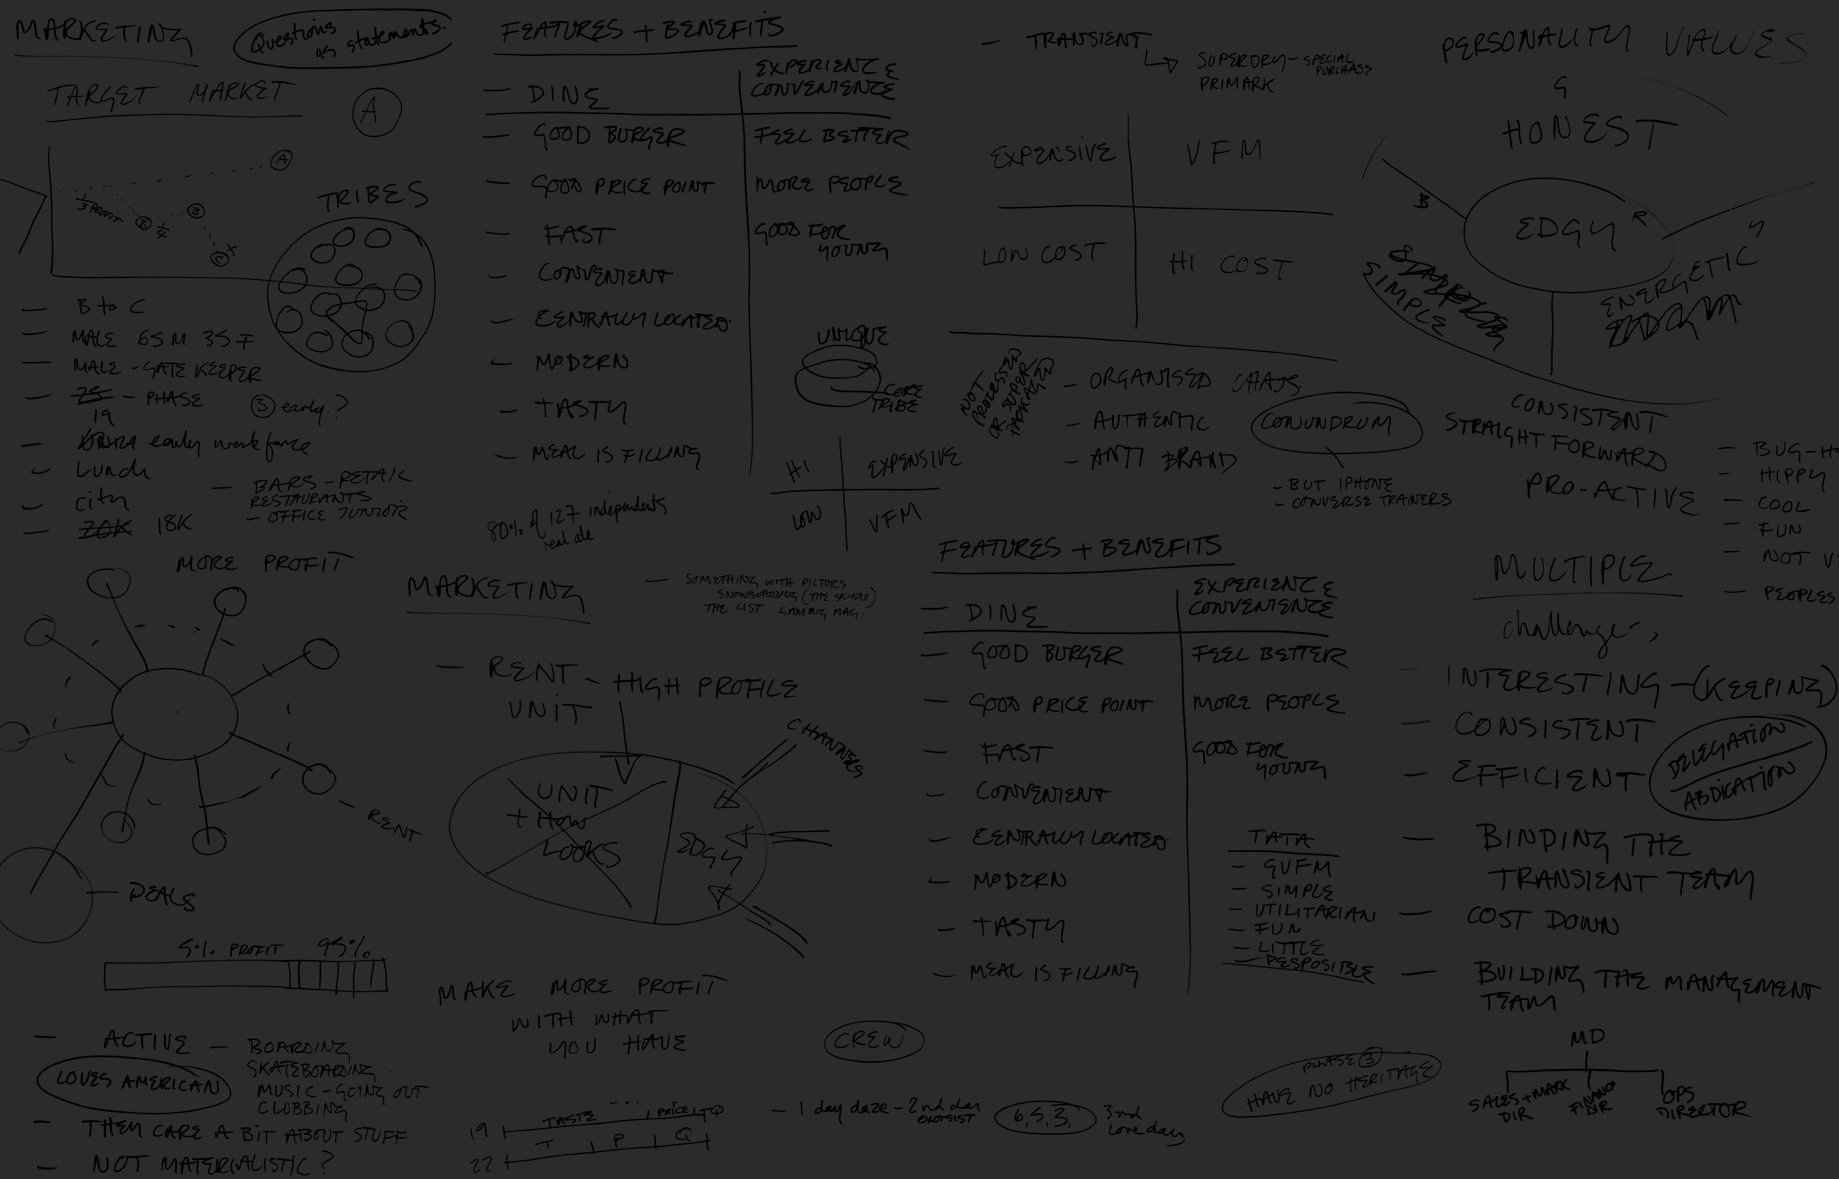 MARKETING
Questions
as statements.
TARGET MARKET
A
A
B
C
TRIBES
- B to C
- MALE 65M 35F
- MALE - GATE KEEPER
- 25 - PHASE
19
3 early?
- early workforce
- Lunch
- City
- 20K 18K
- BARS - RETAIL
RESTAURANTS
- OFFICE JUNIOR
MORE PROFIT
RENT
DEALS
5% PROFIT 95%
- ACTIVE - BOARDING
SKATEBOARDING
MUSIC - GOING OUT
CLUBBING
LOVES AMERICAN
- THEY CARE A BIT ABOUT STUFF
- NOT MATERIALISTIC?
FEATURES + BENEFITS
EXPERIENCE
CONVENIENCE
- DINE
- GOOD BURGER
FEEL BETTER
- GOOD PRICE POINT
MORE PEOPLE
- FAST
GOOD FOR
YOUNG
- CONVENIENT
- CENTRALLY LOCATED
- MODERN
- TASTY
- MEAL IS FILLING
UNIQUE
CORE
TRIBE
HI
EXPENSIVE
LOW
VFM
80% of 127 independents
real ale
MARKETING
- SOMETHING WITH PICTURS
SNOWBOARDING (THE SKINNI)
THE LIST GAMING MAG.
- RENT - HIGH PROFILE
UNIT
CHANNELS
UNIT
+ HOW
LOOKS
EDGY
MAKE MORE PROFIT
WITH WHAT
YOU HAVE
CREW
TASTE
PRICE
19
T P Q
22
- 1 day daze - 2nd day
6,5,3,
3nd
love day
- TRANSIENT
SUPERDRY - SPECIAL
PURCHASE
PRIMARK
EXPENSIVE
VFM
LOW COST
HI COST
NOT
PROCESSED
OR SUPER
PACKAGED
- ORGANISED CHAOS
- AUTHENTIC
- ANTI BRAND
CONUNDRUM
- BUT IPHONE
- CONVERSE TRAINERS
FEATURES + BENEFITS
EXPERIENCE
CONVENIENCE
- DINE
- GOOD BURGER
FEEL BETTER
- GOOD PRICE POINT
MORE PEOPLE
- FAST
GOOD FOR
YOUNG
- CONVENIENT
- CENTRALLY LOCATED
- MODERN
- TASTY
- MEAL IS FILLING
TATA
- GVFM
- SIMPLE
- UTILITARIAN
- FUN
- LITTLE
- RESPOSIBLE
PHASE 3
HAVE NO HERITAGE
PERSONALITY VALUES
G
HONEST
B
EDGY R
Y
SIMPLE
ENERGETIC
CONSISTENT
STRAIGHT FORWARD
PRO-ACTIVE
- HIPPY
- COOL
- FUN
- NOT
- PEOPLES
MULTIPLE
challenges,
- INTERESTING - (KEEPING)
- CONSISTENT
- EFFICIENT
DELEGATION
ABDICATION
- BINDING THE
TRANSIENT TEAM
- COST DOWN
- BUILDING THE MANAGEMENT
TEAM
MD
SALES + MARK
DIR
FINANCE
DIR
OPS
DIRECTOR